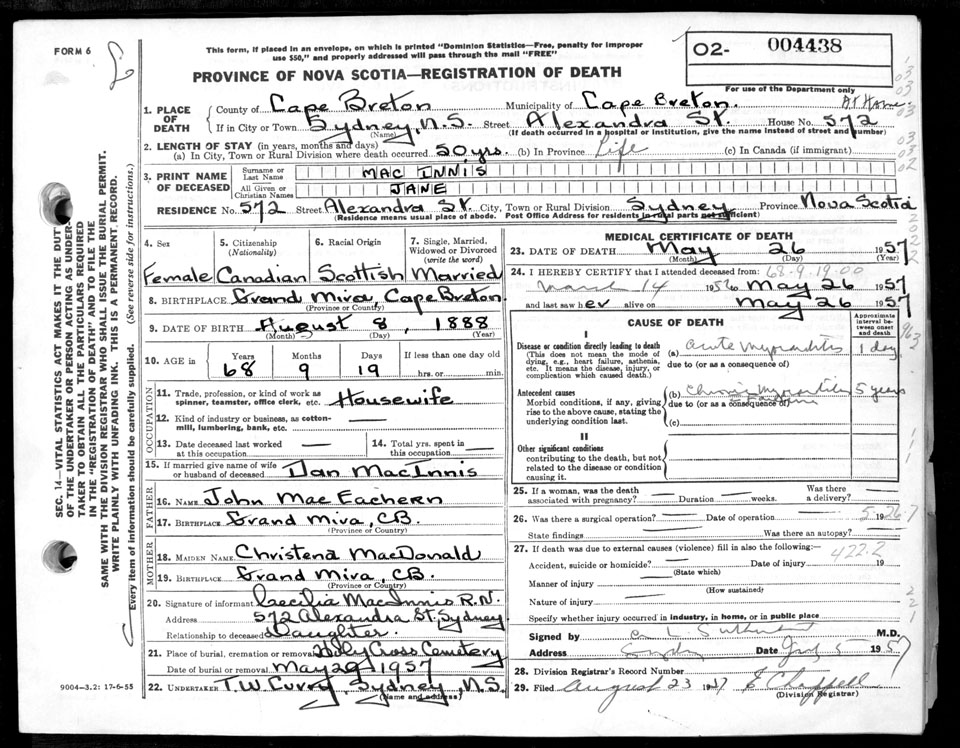 FORM 6
This form, if placed in an envelope, on which is printed "Dominion Statistics—Free, penalty for improper
use $50," and properly addressed will pass through the mail "FREE"
O2- 004438
For use of the Department only
PROVINCE OF NOVA SCOTIA—REGISTRATION OF DEATH
1. PLACE OF DEATH County of Cape Breton Municipality of Cape Breton. At Home
If in City or Town Sydney, N.S. Street Alexandra St. House No. 572
(Name) (If death occurred in a hospital or institution, give the name instead of street and number)
2. LENGTH OF STAY (in years, months and days)
(a) In City, Town or Rural Division where death occurred 50 yrs. (b) In Province Life (c) In Canada (if immigrant)
3. PRINT NAME OF DECEASED Surname or Last Name MAC INNIS
All Given or Christian Names JANE
RESIDENCE No. 572 Street Alexandra St. City, Town or Rural Division Sydney Province Nova Scotia
(Residence means usual place of abode. Post Office Address for residents in rural parts not sufficient)
4. Sex 5. Citizenship (Nationality) 6. Racial Origin 7. Single, Married, Widowed or Divorced (write the word)
Female Canadian Scottish Married
8. BIRTHPLACE Grand Mira, Cape Breton
(Province or Country)
9. DATE OF BIRTH August 8, 1888
(Month) (Day) (Year)
10. AGE in Years Months Days If less than one day old
68 9 19 hrs. or min.
OCCUPATION
11. Trade, profession, or kind of work as spinner, teamster, office clerk, etc. Housewife
12. Kind of industry or business, as cotton-mill, lumbering, bank, etc. —
13. Date deceased last worked at this occupation — 14. Total yrs. spent in this occupation —
15. If married give name of wife or husband of deceased Dan MacInnis
FATHER
16. NAME John MacEachern
17. BIRTHPLACE Grand Mira, C.B.
MOTHER
18. MAIDEN NAME Christena MacDonald
19. BIRTHPLACE Grand Mira, C.B.
(Province or Country)
20. Signature of informant Cecilia MacInnis R.N.
Address 572 Alexandra St. Sydney
Relationship to deceased Daughter.
21. Place of burial, cremation or removal Holy Cross Cemetery
Date of burial or removal May 29 1957
22. UNDERTAKER T.W. Curry, Sydney, N.S.
(Name and address)
9004-3.2: 17-6-55
MEDICAL CERTIFICATE OF DEATH
23. DATE OF DEATH May 26 1957
(Month) (Day) (Year)
24. I HEREBY CERTIFY that I attended deceased from: 68-9-19-00
March 14 1956 to May 26 1957
and last saw her alive on May 26 1957
CAUSE OF DEATH
Approximate interval between onset and death
I
Disease or condition directly leading to death
(This does not mean the mode of dying, e.g., heart failure, asthenia, etc. It means the disease, injury, or complication which caused death.)
(a) acute myocarditis 1 day
due to (or as a consequence of)
Antecedent causes
Morbid conditions, if any, giving rise to the above cause, stating the underlying condition last.
(b) Chronic myocarditis 5 years
due to (or as a consequence of)
(c)
II
Other significant conditions
contributing to the death, but not related to the disease or condition causing it.
25. If a woman, was the death associated with pregnancy? — Duration — weeks. Was there a delivery? —
26. Was there a surgical operation? — Date of operation 19
State findings Was there an autopsy? —
27. If death was due to external causes (violence) fill in also the following:—
422.2
Accident, suicide or homicide? — Date of injury 19
(State which)
Manner of injury —
(How sustained)
Nature of injury —
Specify whether injury occurred in industry, in home, or in public place
Signed by M.D.
Address Sydney Date 5 1957
28. Division Registrar's Record Number
29. Filed August 23 1957 E Chappell
(Division Registrar)
SEC. 14—VITAL STATISTICS ACT MAKES IT THE DUTY
OF THE UNDERTAKER OR PERSON ACTING AS UNDER-
TAKER TO OBTAIN ALL THE PARTICULARS REQUIRED
IN THE "REGISTRATION OF DEATH" AND TO FILE THE
SAME WITH THE DIVISION REGISTRAR WHO SHALL ISSUE THE BURIAL PERMIT.
WRITE PLAINLY WITH UNFADING INK. THIS IS A PERMANENT RECORD.
Every item of information should be carefully supplied. (See reverse side for instructions.)